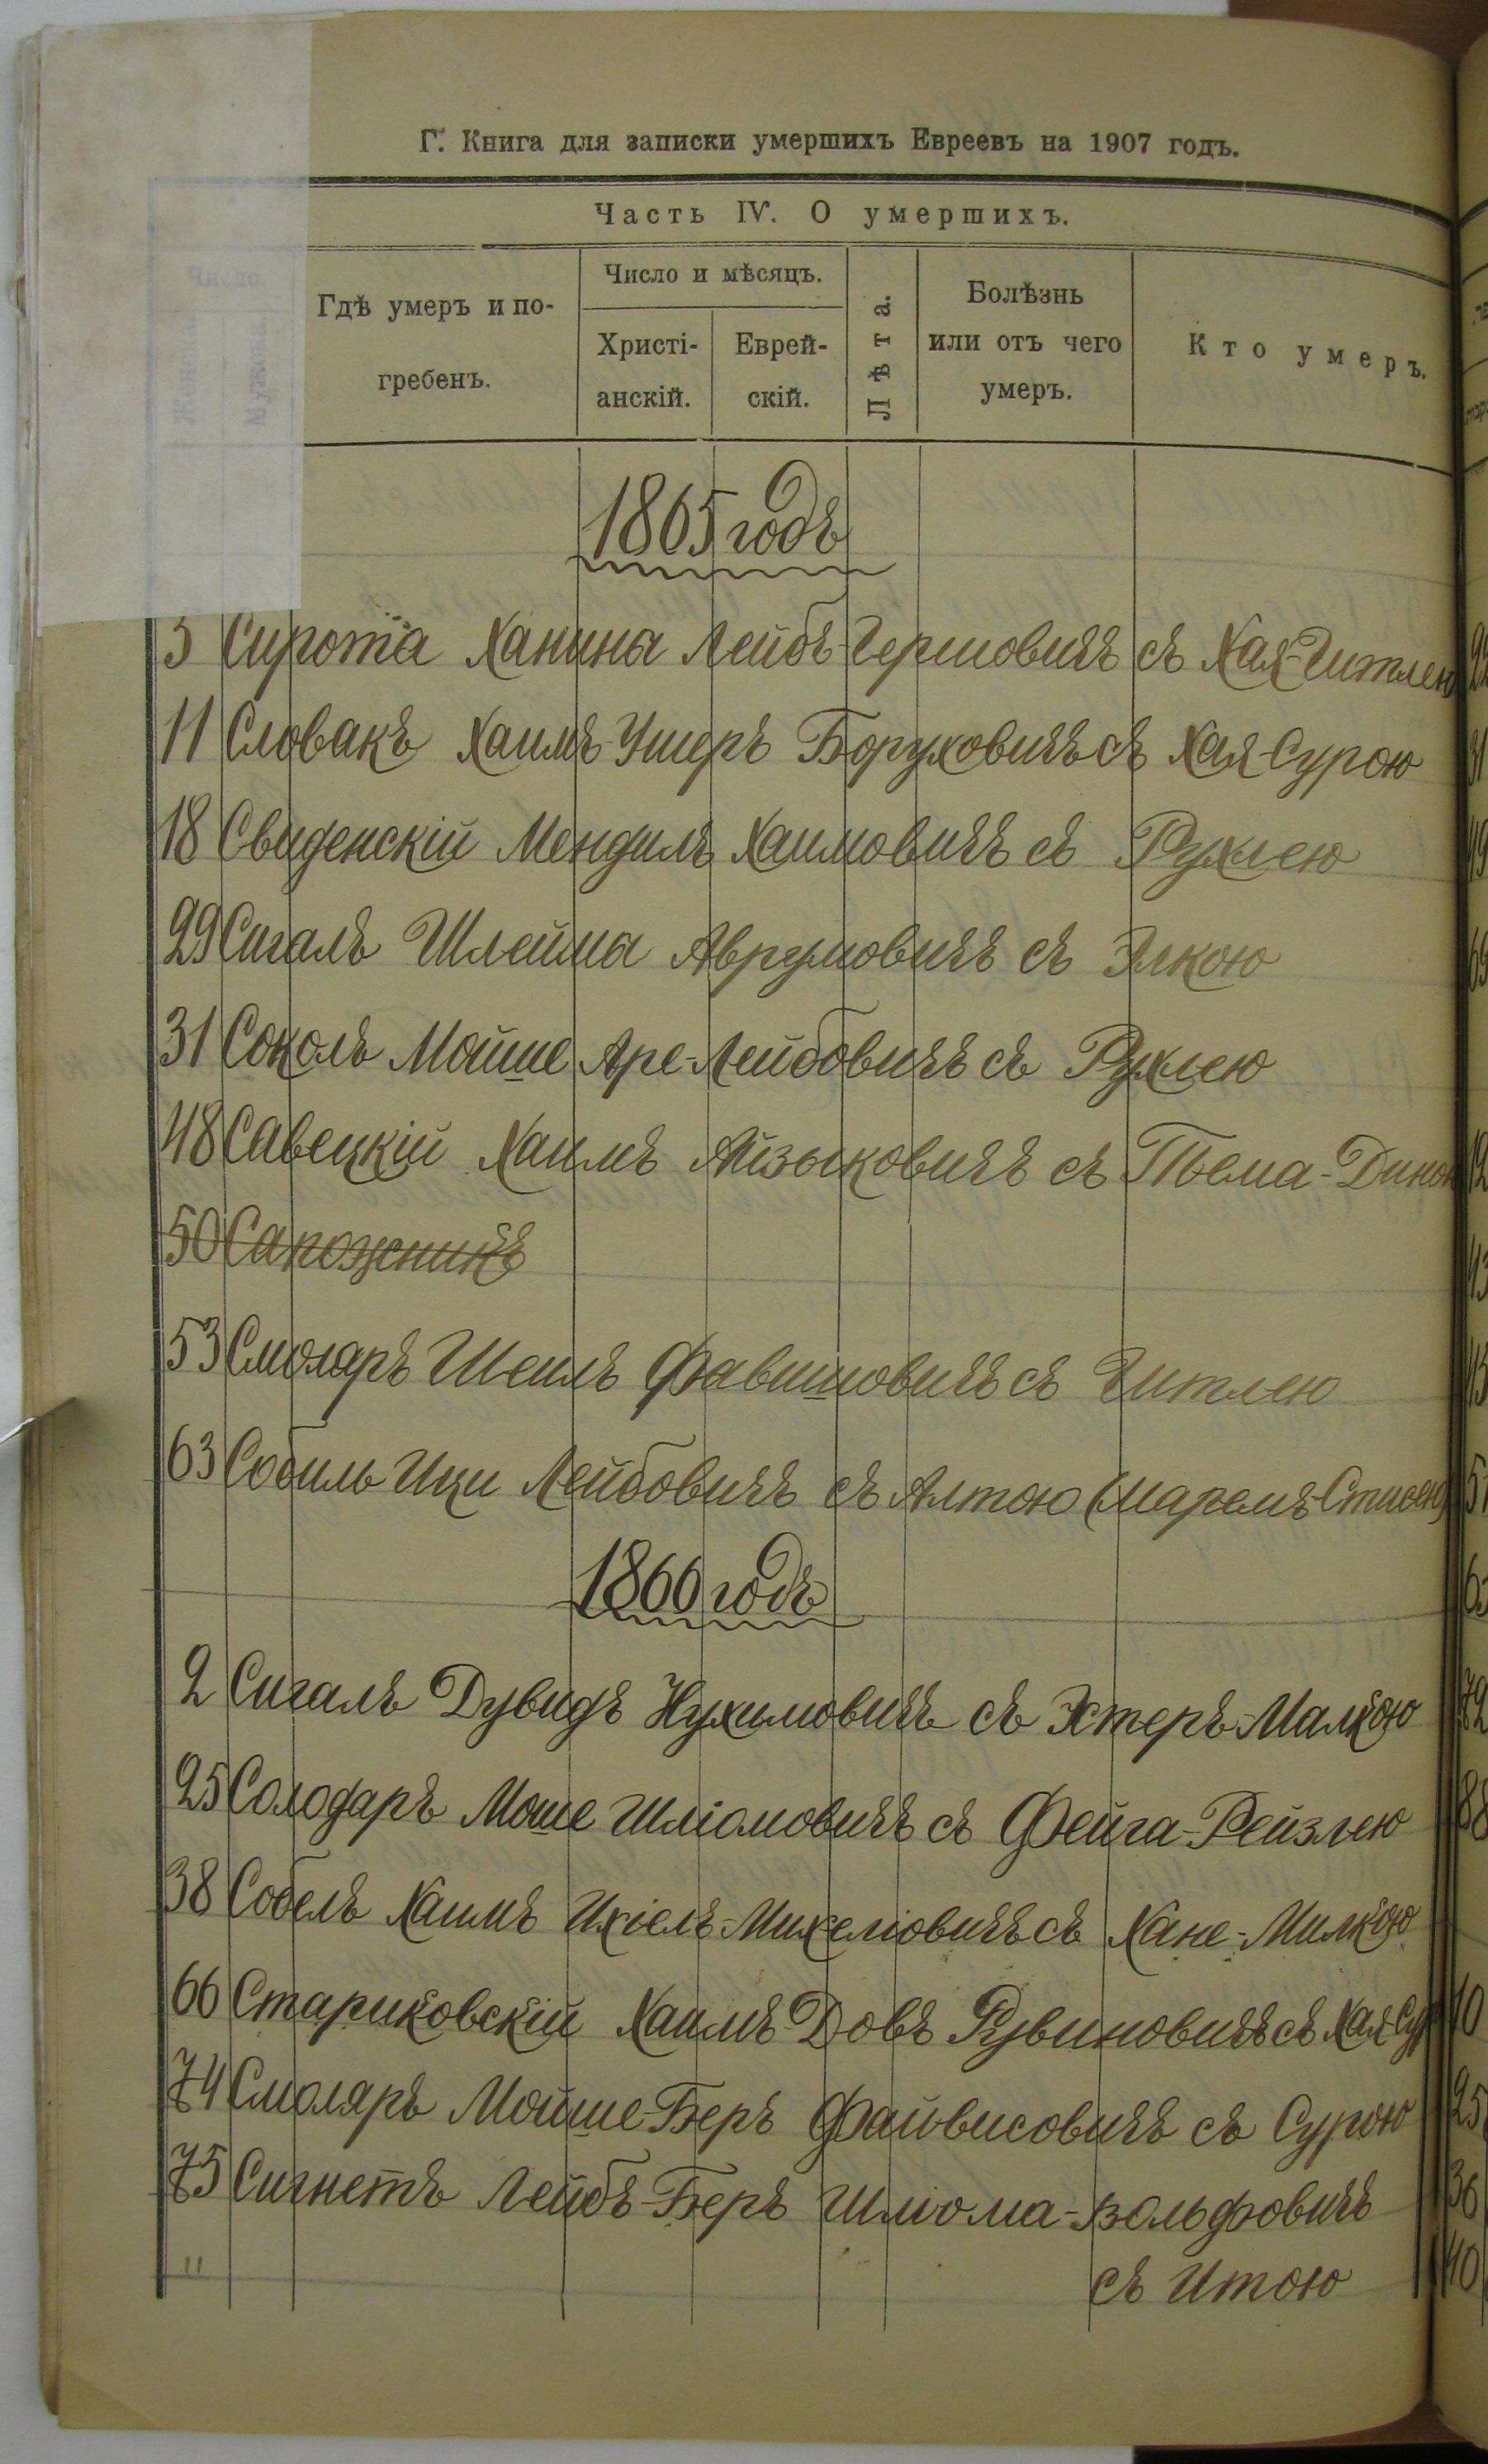 Г. Книга для записки умершихъ Евреевъ на 1907 годъ.
Часть IV. О умершихъ.
Число.
Гдѣ умеръ и по-
гребенъ.
Число и мѣсяцъ.
Христі-
анскій.
Еврей-
скій.
Лѣта.
Болѣзнь
или отъ чего
умеръ.
Кто умеръ.
1865 годъ
5 Сирота Ханина Лейбъ-Гершовичъ съ Хая-Гитлею
11 Словакъ Хаимъ-Ушеръ Боруховичъ съ Хая-Сурою
18 Свиденскій Мендиль Хаимовичъ съ Рухлею
29 Сигалъ Шлейма Аврумовичъ съ Элкою
31 Соколъ Мойше Аре-Лейбовичъ съ Рухлею
48 Савецкій Хаимъ Айзыковичъ съ Тема-Диною
50 Сапожникъ
53 Смоляръ Шеилъ Фавишовичъ съ Гитлею
63 Собиль Ици Лейбовичъ съ Алтою
1866 годъ
2 Сигалъ Дувидъ Нухимовичъ съ Эстеръ-Малкою
25 Солодаръ Моше Шліомовичъ съ Фейга-Рейзлею
38 Собелъ Хаимъ Ихіелъ-Михеліовичъ съ Хане-Милкою
66 Стариковскій Хаимъ-Довъ Рувиновичъ съ Хая Сур
74 Смоляръ Мойше-Беръ Файвисовичъ съ Сурою
75 Сигнетъ Лейбъ-Беръ Шліома-Вольфовичъ
" съ Итою